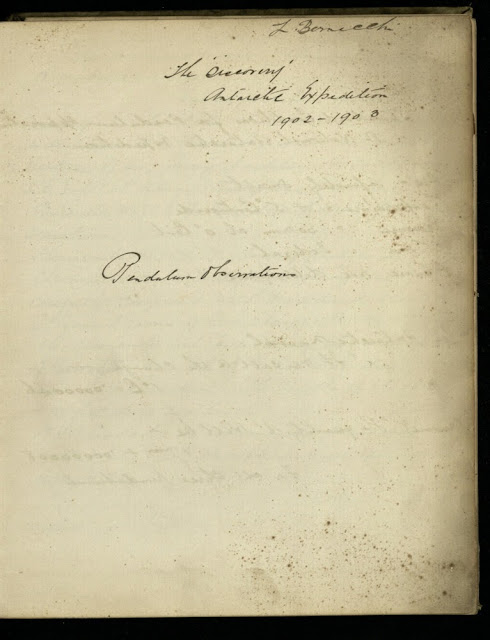 L Bernacchi
The 'Discovery'
Antarctic Expedition
1902-1903
Pendulum Observations